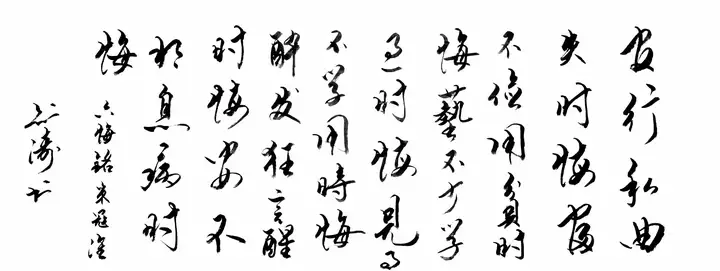 官行私曲
失时悔富
不俭用贫时
悔藝不少学
过时悔見事
不学用時悔
醉发狂言醒
时悔安不
将息病时
悔
六悔铭宋寇准
涛书